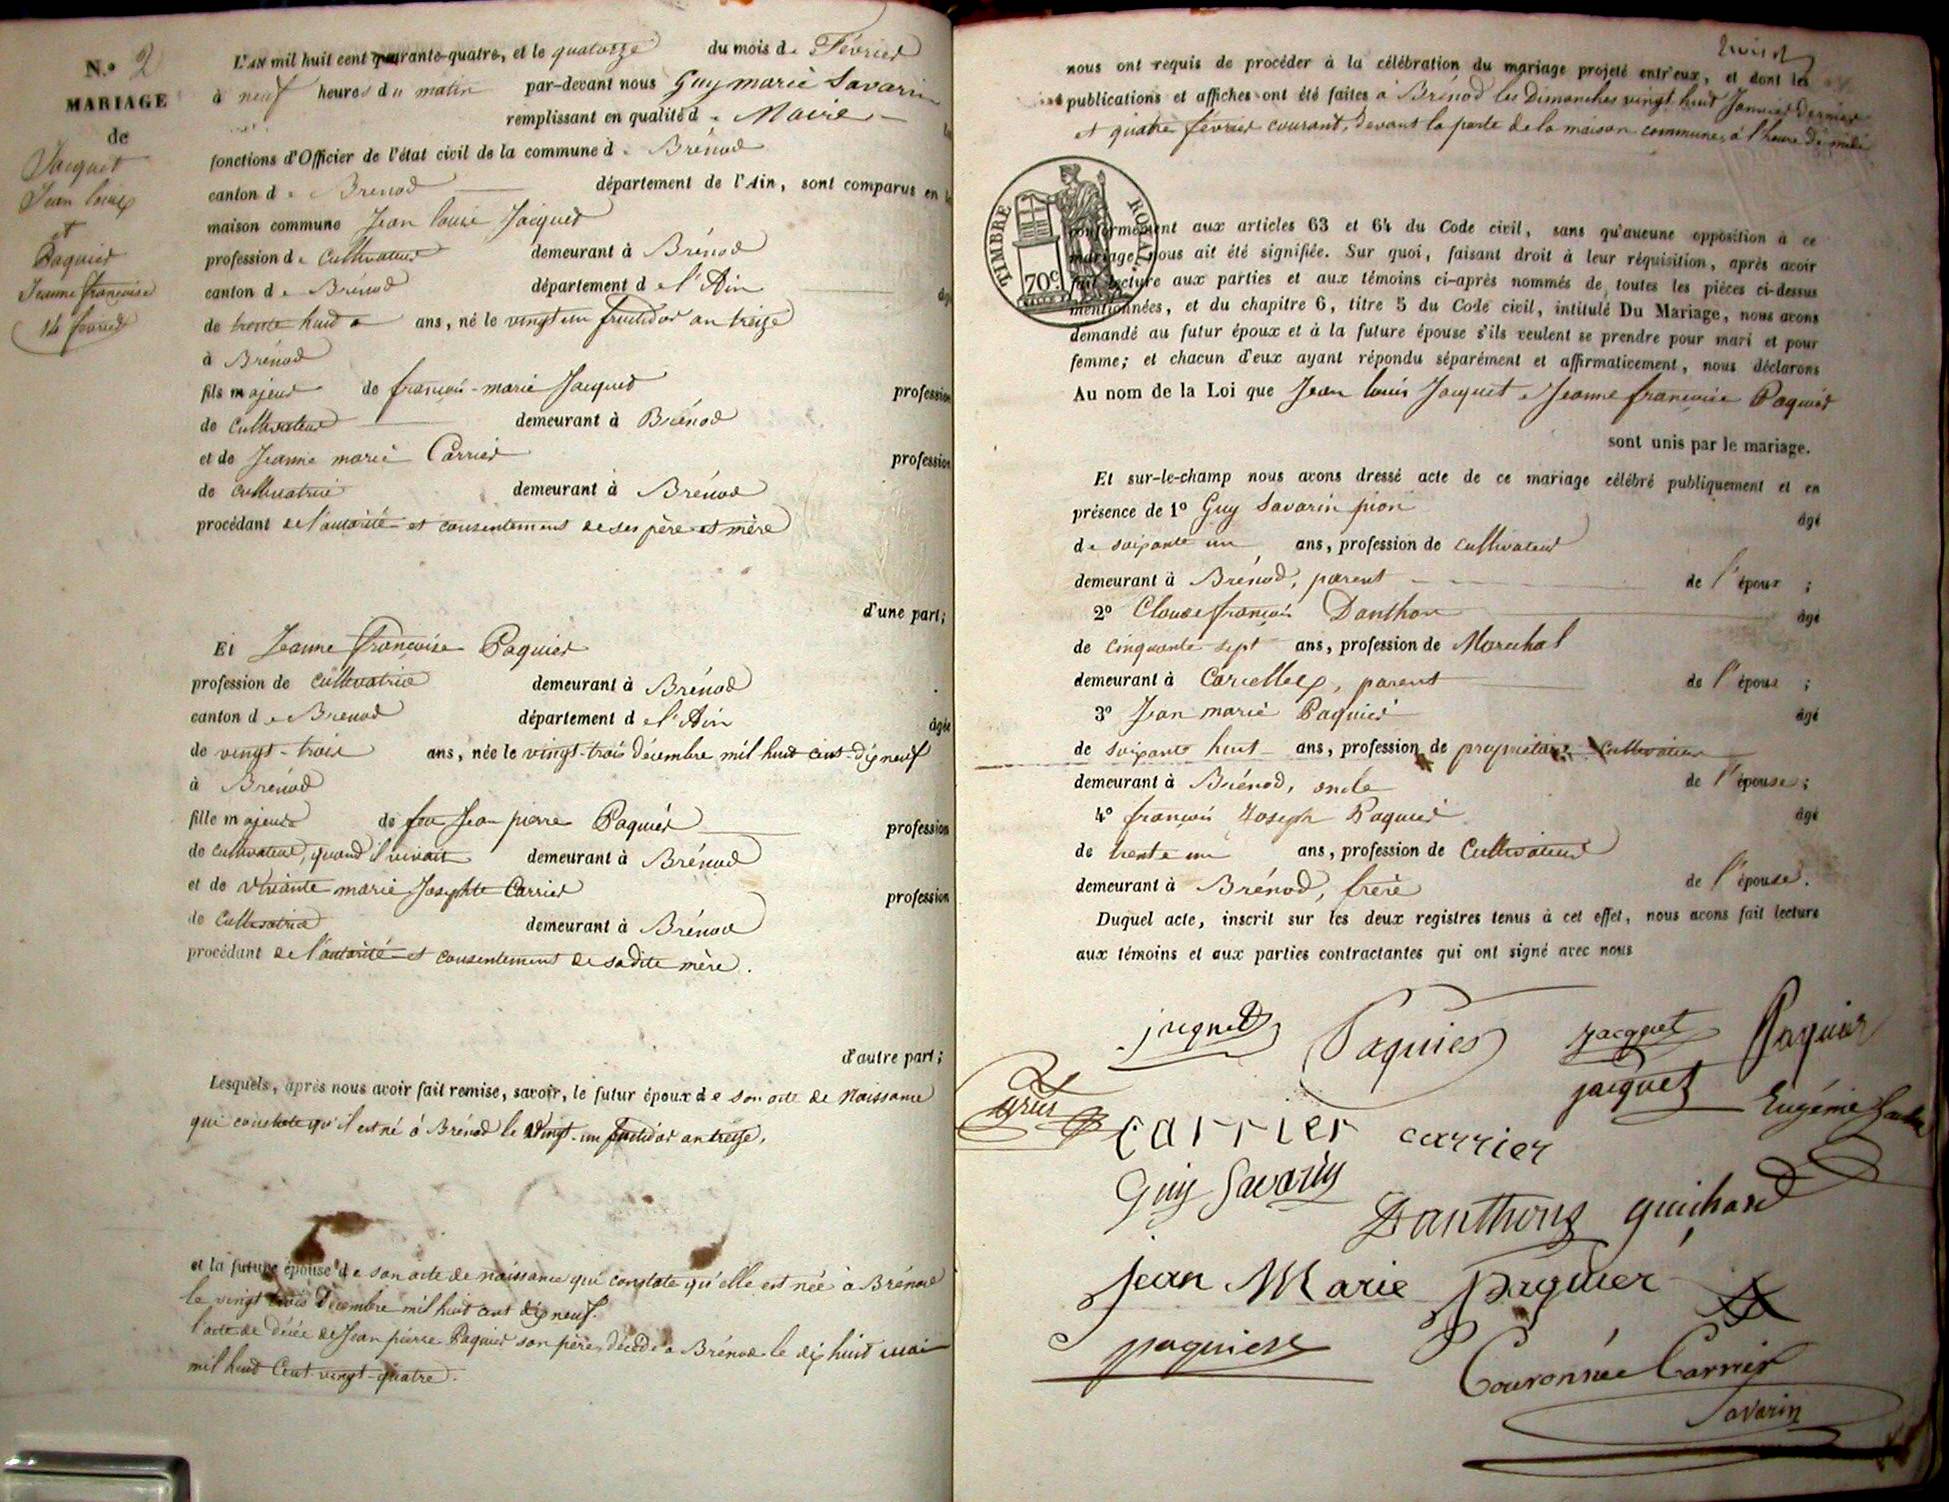 N.° 2
MARIAGE
de
Jacquet
Jean louis
et
Paquier
Jeanne françoise
14 février
L'AN mil huit cent quarante-quatre, et le quatorze du mois de Février
à neuf heures du matin par-devant nous Guy marie Savarin
remplissant en qualité de Maire
fonctions d'Officier de l'état civil de la commune de Brénod
canton de Brenod département de l'Ain, sont comparus en la
maison commune Jean louis Jacquet
profession de cultivateur demeurant à Brénod
canton de Brénod département de l'Ain âgé
de trente huit ans, né le vingt un fructidor an treize
à Brénod
fils majeur de françois-marie Jacquet profession
de cultivateur demeurant à Brénod
et de Jeanne marie Carrier profession
de cultivatrice demeurant à Brénod
procédant de l'autorité et consentement de ses père et mère
d'une part;
Et Jeanne françoise Paquier
profession de cultivatrice demeurant à Brénod
canton de Brenod département de l'Ain âgée
de vingt-trois ans, née le vingt-trois décembre mil huit cent-dix neuf
à Brénod
fille majeure de feu Jean pierre Paquier profession
de cultivateur, quand il vivait demeurant à Brénod
et de vivante marie Josephte Carrier profession
de cultivatrice demeurant à Brénod
procédant de l'autorité et consentement de sadite mère.
d'autre part;
Lesquels, après nous avoir fait remise, savoir, le futur époux de son acte de Naissance
qui constate qu'il est né à Brénod le vingt-un fructidor an treize,
et la future épouse de son acte de naissance qui constate qu'elle est née à Brénod
le vingt trois décembre mil huit cent dix neuf.
l'acte de décès de Jean pierre Paquier son père, décédé à Brénod le dix huit mai
mil huit Cent vingt-quatre.
nous ont requis de procéder à la célébration du mariage projeté entr'eux, et dont les
publications et affiches ont été faites à Brénod les Dimanches vingt huit Janvier dernier
et quatre février courant, devant la porte de la maison commune, à l'heure de midi
TIMBRE ROYAL
70c
conformément aux articles 63 et 64 du Code civil, sans qu'aucune opposition à ce
mariage nous ait été signifiée. Sur quoi, faisant droit à leur réquisition, après avoir
fait lecture aux parties et aux témoins ci-après nommés de toutes les pièces ci-dessus
mentionnées, et du chapitre 6, titre 5 du Code civil, intitulé Du Mariage, nous avons
demandé au futur époux et à la future épouse s'ils veulent se prendre pour mari et pour
femme; et chacun d'eux ayant répondu séparément et affirmativement, nous déclarons
Au nom de la Loi que Jean louis Jacquet & Jeanne françoise Paquier
sont unis par le mariage.
Et sur-le-champ nous avons dressé acte de ce mariage célébré publiquement et en
présence de 1° Guy Savarin pion âgé
de soixante un ans, profession de cultivateur
demeurant à Brénod, parent de l'époux ;
2° Claude françois Danthon âgé
de cinquante sept ans, profession de Marechal
demeurant à Corcelles, parent de l'époux ;
3° Jean marie Paquier âgé
de soixante huit ans, profession de propriétaire cultivateur
demeurant à Brénod, oncle de l'épouse ;
4° françois Joseph Paquier âgé
de trente un ans, profession de Cultivateur
demeurant à Brénod, frère de l'épouse.
Duquel acte, inscrit sur les deux registres tenus à cet effet, nous avons fait lecture
aux témoins et aux parties contractantes qui ont signé avec nous
jacquet Paquier jacquet Paquier
jacquet Eugénie
carrier carrier
Guy Savarin
Danthong guichard
jean Marie paquier
paquier
Couronnée Carrier
Savarin